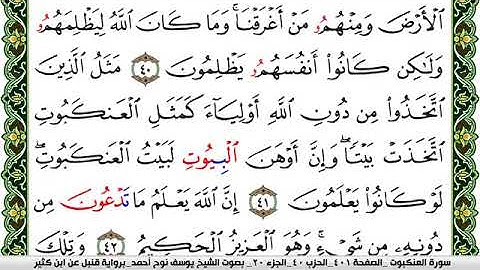 الْأَرْضَ وَمِنْهُمُۥ مَنْ أَغْرَقْنَا ۚ وَمَا كَانَ اللَّهُ لِيَظْلِمَهُمُۥ
وَلَٰكِن كَانُوٓا۟ أَنفُسَهُمُۥ يَظْلِمُونَ ٤٠ مَثَلُ الَّذِينَ
اتَّخَذُوا۟ مِن دُونِ اللَّهِ أَوْلِيَآءَ كَمَثَلِ الْعَنكَبُوتِ
اتَّخَذَتْ بَيْتًا ۖ وَإِنَّ أَوْهَنَ الْبِيُوتِ لَبَيْتُ الْعَنكَبُوتِ ۖ
لَوْ كَانُوا۟ يَعْلَمُونَ ٤١ إِنَّ اللَّهَ يَعْلَمُ مَا تَدْعُونَ مِن
دُونِهِۦ مِن شَىْءٍ ۚ وَهُوَ الْعَزِيزُ الْحَكِيمُ ٤٢ وَتِلْكَ
سورة العنكبوت _الصفحة ٤٠١_الحزب ٤٠_الجزء ٢٠_ بصوت الشيخ يوسف نوح أحمد_برواية قنبل عن ابن كثير